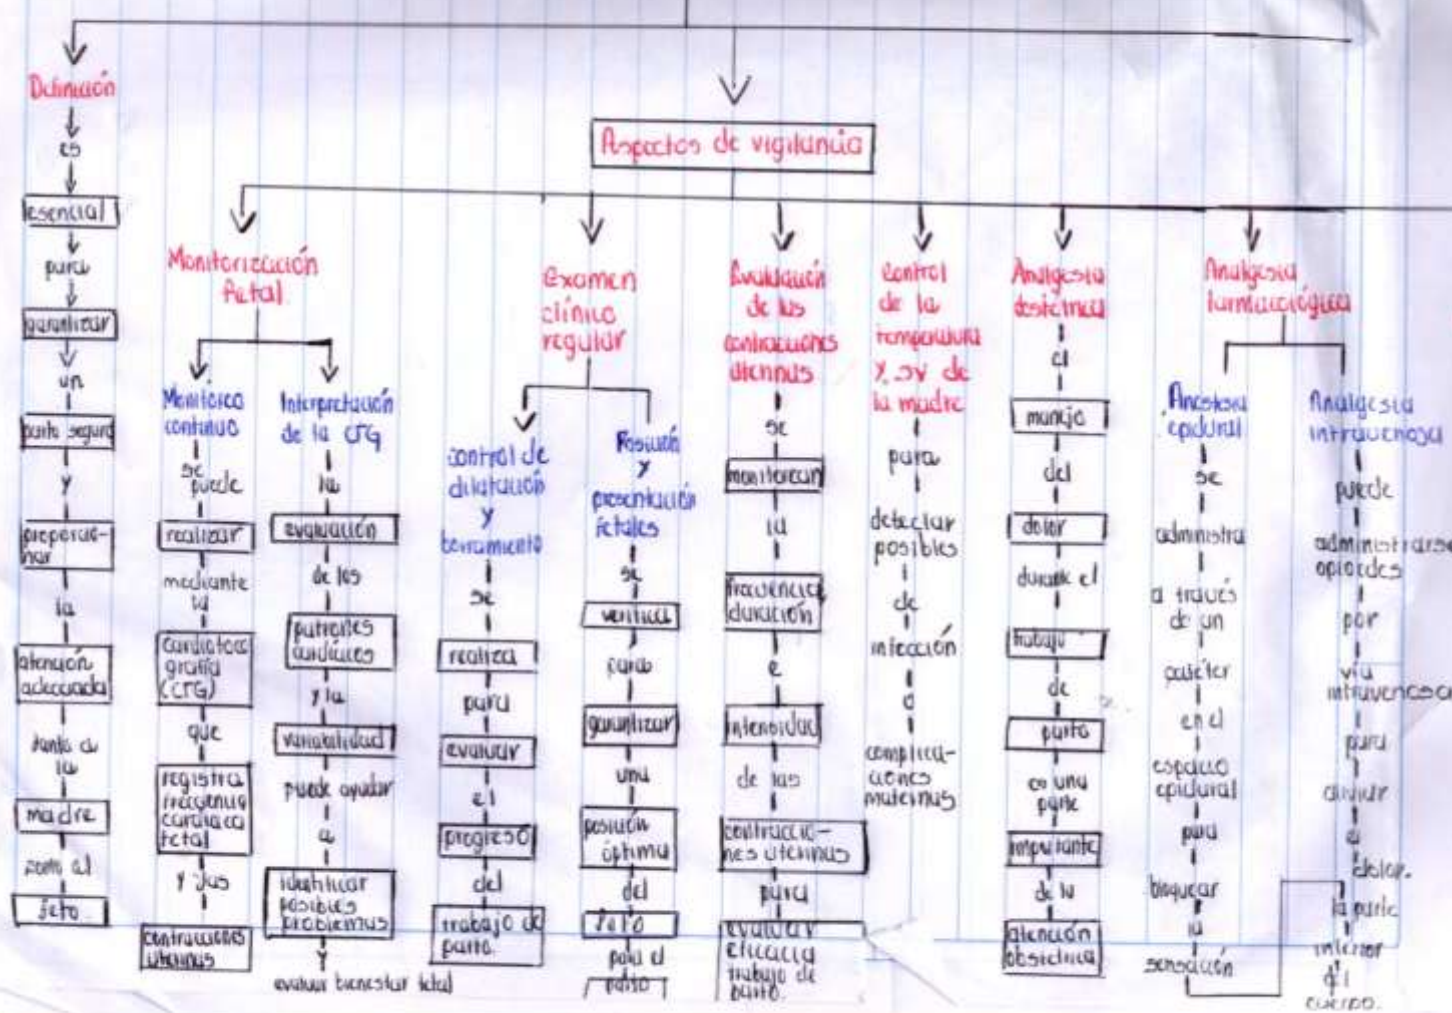 Definición
es
esencial
para
garantizar
un
parto seguro
y
proporcio-
nar
la
atención
adecuada
tanto a
la
madre
como al
feto.
Aspectos de vigilancia
Monitorización
fetal
Monitoreo
continuo
se
puede
realizar
mediante
la
cardiotoco
grafía
(CTG)
que
registra
frecuencia
cardiaca
fetal
y las
contracciones
uterinas
Interpretación
de la CTG
la
evaluación
de los
patrones
cardíacos
y la
variabilidad
puede ayudar
a
identificar
posibles
problemas
y
evaluar bienestar fetal
Examen
clínico
regular
control de
dilatación
y
borramiento
se
realiza
para
evaluar
el
progreso
del
trabajo de
parto.
Posición
y
presentación
fetales
se
verifica
para
garantizar
una
posición
óptima
del
feto
para el
parto
Evaluación
de las
contracciones
uterinas
se
monitorean
la
frecuencia
duración
e
intensidad
de las
contraccio-
nes uterinas
para
evaluar
eficacia
trabajo de
parto.
control
de la
temperatura
y SV de
la madre
para
detectar
posibles
de
infección
o
complica-
ciones
maternas
Analgesia
obstétrica
el
manejo
del
dolor
durante el
trabajo
de
parto
es una
parte
importante
de la
atención
obstétrica
Analgesia
farmacológica
Anestesia
epidural
se
administra
a través
de un
catéter
en el
espacio
epidural
para
bloquear
la
sensación
la parte
inferior
del
cuerpo.
Analgesia
intravenosa
puede
administrarse
opioides
por
vía
intravenosa
para
aliviar
dolor.